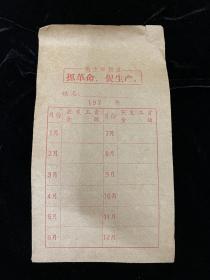 最高指示
抓革命，促生产。
姓名：
197 年
月份 应发工资金额 月份 应发工资金额
1月 7月
2月 8月
3月 9月
4月 10月
5月 11月
6月 12月